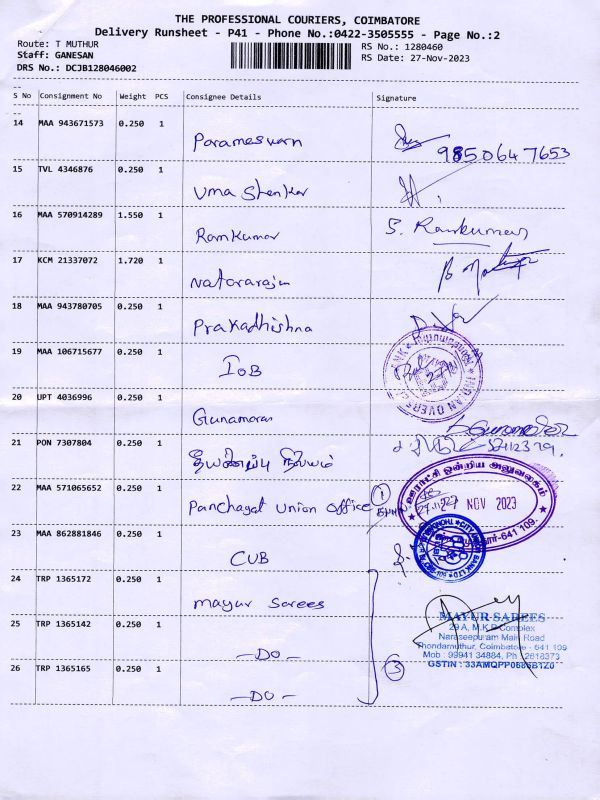 THE PROFESSIONAL COURIERS, COIMBATORE
Delivery Runsheet - P41 - Phone No.:0422-3505555 - Page No.:2
Route: T MUTHUR
Staff: GANESAN
DRS No.: DCJB128046002
RS No.: 1280460
RS Date: 27-Nov-2023
S No Consignment No Weight PCS Consignee Details Signature
14 MAA 943671573 0.250 1
Parameswarn
9850647653
15 TVL 4346876 0.250 1
Uma Shenkar
16 MAA 570914289 1.550 1
Ramkumar S. Ramkumar
17 KCM 21337072 1.720 1
Natararajin
18 MAA 943780705 0.250 1
Prakadhishna
19 MAA 106715677 0.250 1
IOB
INDIAN OVERS
20 UPT 4036996 0.250 1
Gunamoran
21 PON 7307804 0.250 1
தீயணைப்பு நிலையம்
22 MAA 571065652 0.250 1
Panchayat Union Office 1
ஊராட்சி ஒன்றிய அலுவலகம்
27 NOV 2023
641 109.
23 MAA 862881846 0.250 1
CUB
CITY UNION BANK LTD
24 TRP 1365172 0.250 1
Mayur Sarees
25 TRP 1365142 0.250 1
-DO-
26 TRP 1365165 0.250 1
-DO-
3
MAYUR SAREES
29 A, M.K.P. Complex
Naraseepuram Main Road
Thondamuthur, Coimbatore - 641 109
Mob : 99941 34884, Ph : 2618373